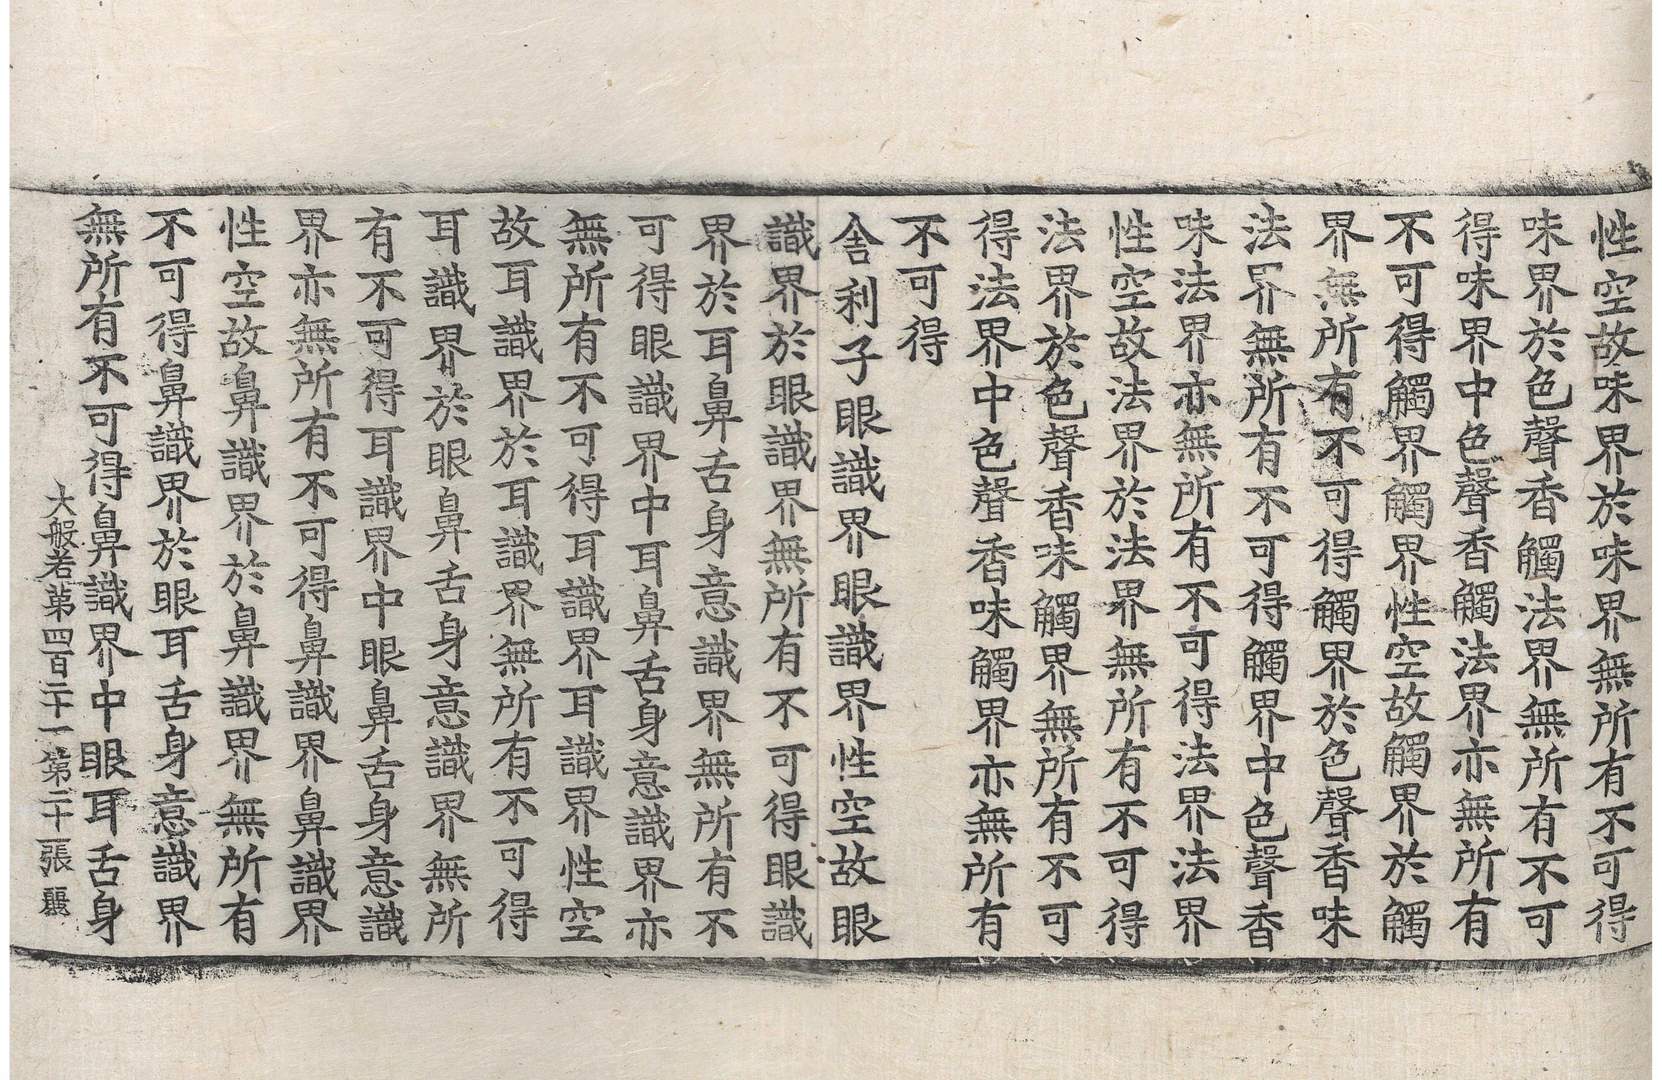 性空故味界於味界無所有不可得
味界於色聲香觸法界無所有不可
得味界中色聲香觸法界亦無所有
不可得觸界觸界性空故觸界於觸
界無所有不可得觸界於色聲香味
法界無所有不可得觸界中色聲香
味法界亦無所有不可得法界法界
性空故法界於法界無所有不可得
法界於色聲香味觸界無所有不可
得法界中色聲香味觸界亦無所有
不可得
舍利子眼識界眼識界性空故眼
識界於眼識界無所有不可得眼識
界於耳鼻舌身意識界無所有不
可得眼識界中耳鼻舌身意識界亦
無所有不可得耳識界耳識界性空
故耳識界於耳識界無所有不可得
耳識界於眼鼻舌身意識界無所
有不可得耳識界中眼鼻舌身意識
界亦無所有不可得鼻識界鼻識界
性空故鼻識界於鼻識界無所有
不可得鼻識界於眼耳舌身意識界
無所有不可得鼻識界中眼耳舌身
大般若第四百二十一 第二十一張 麗